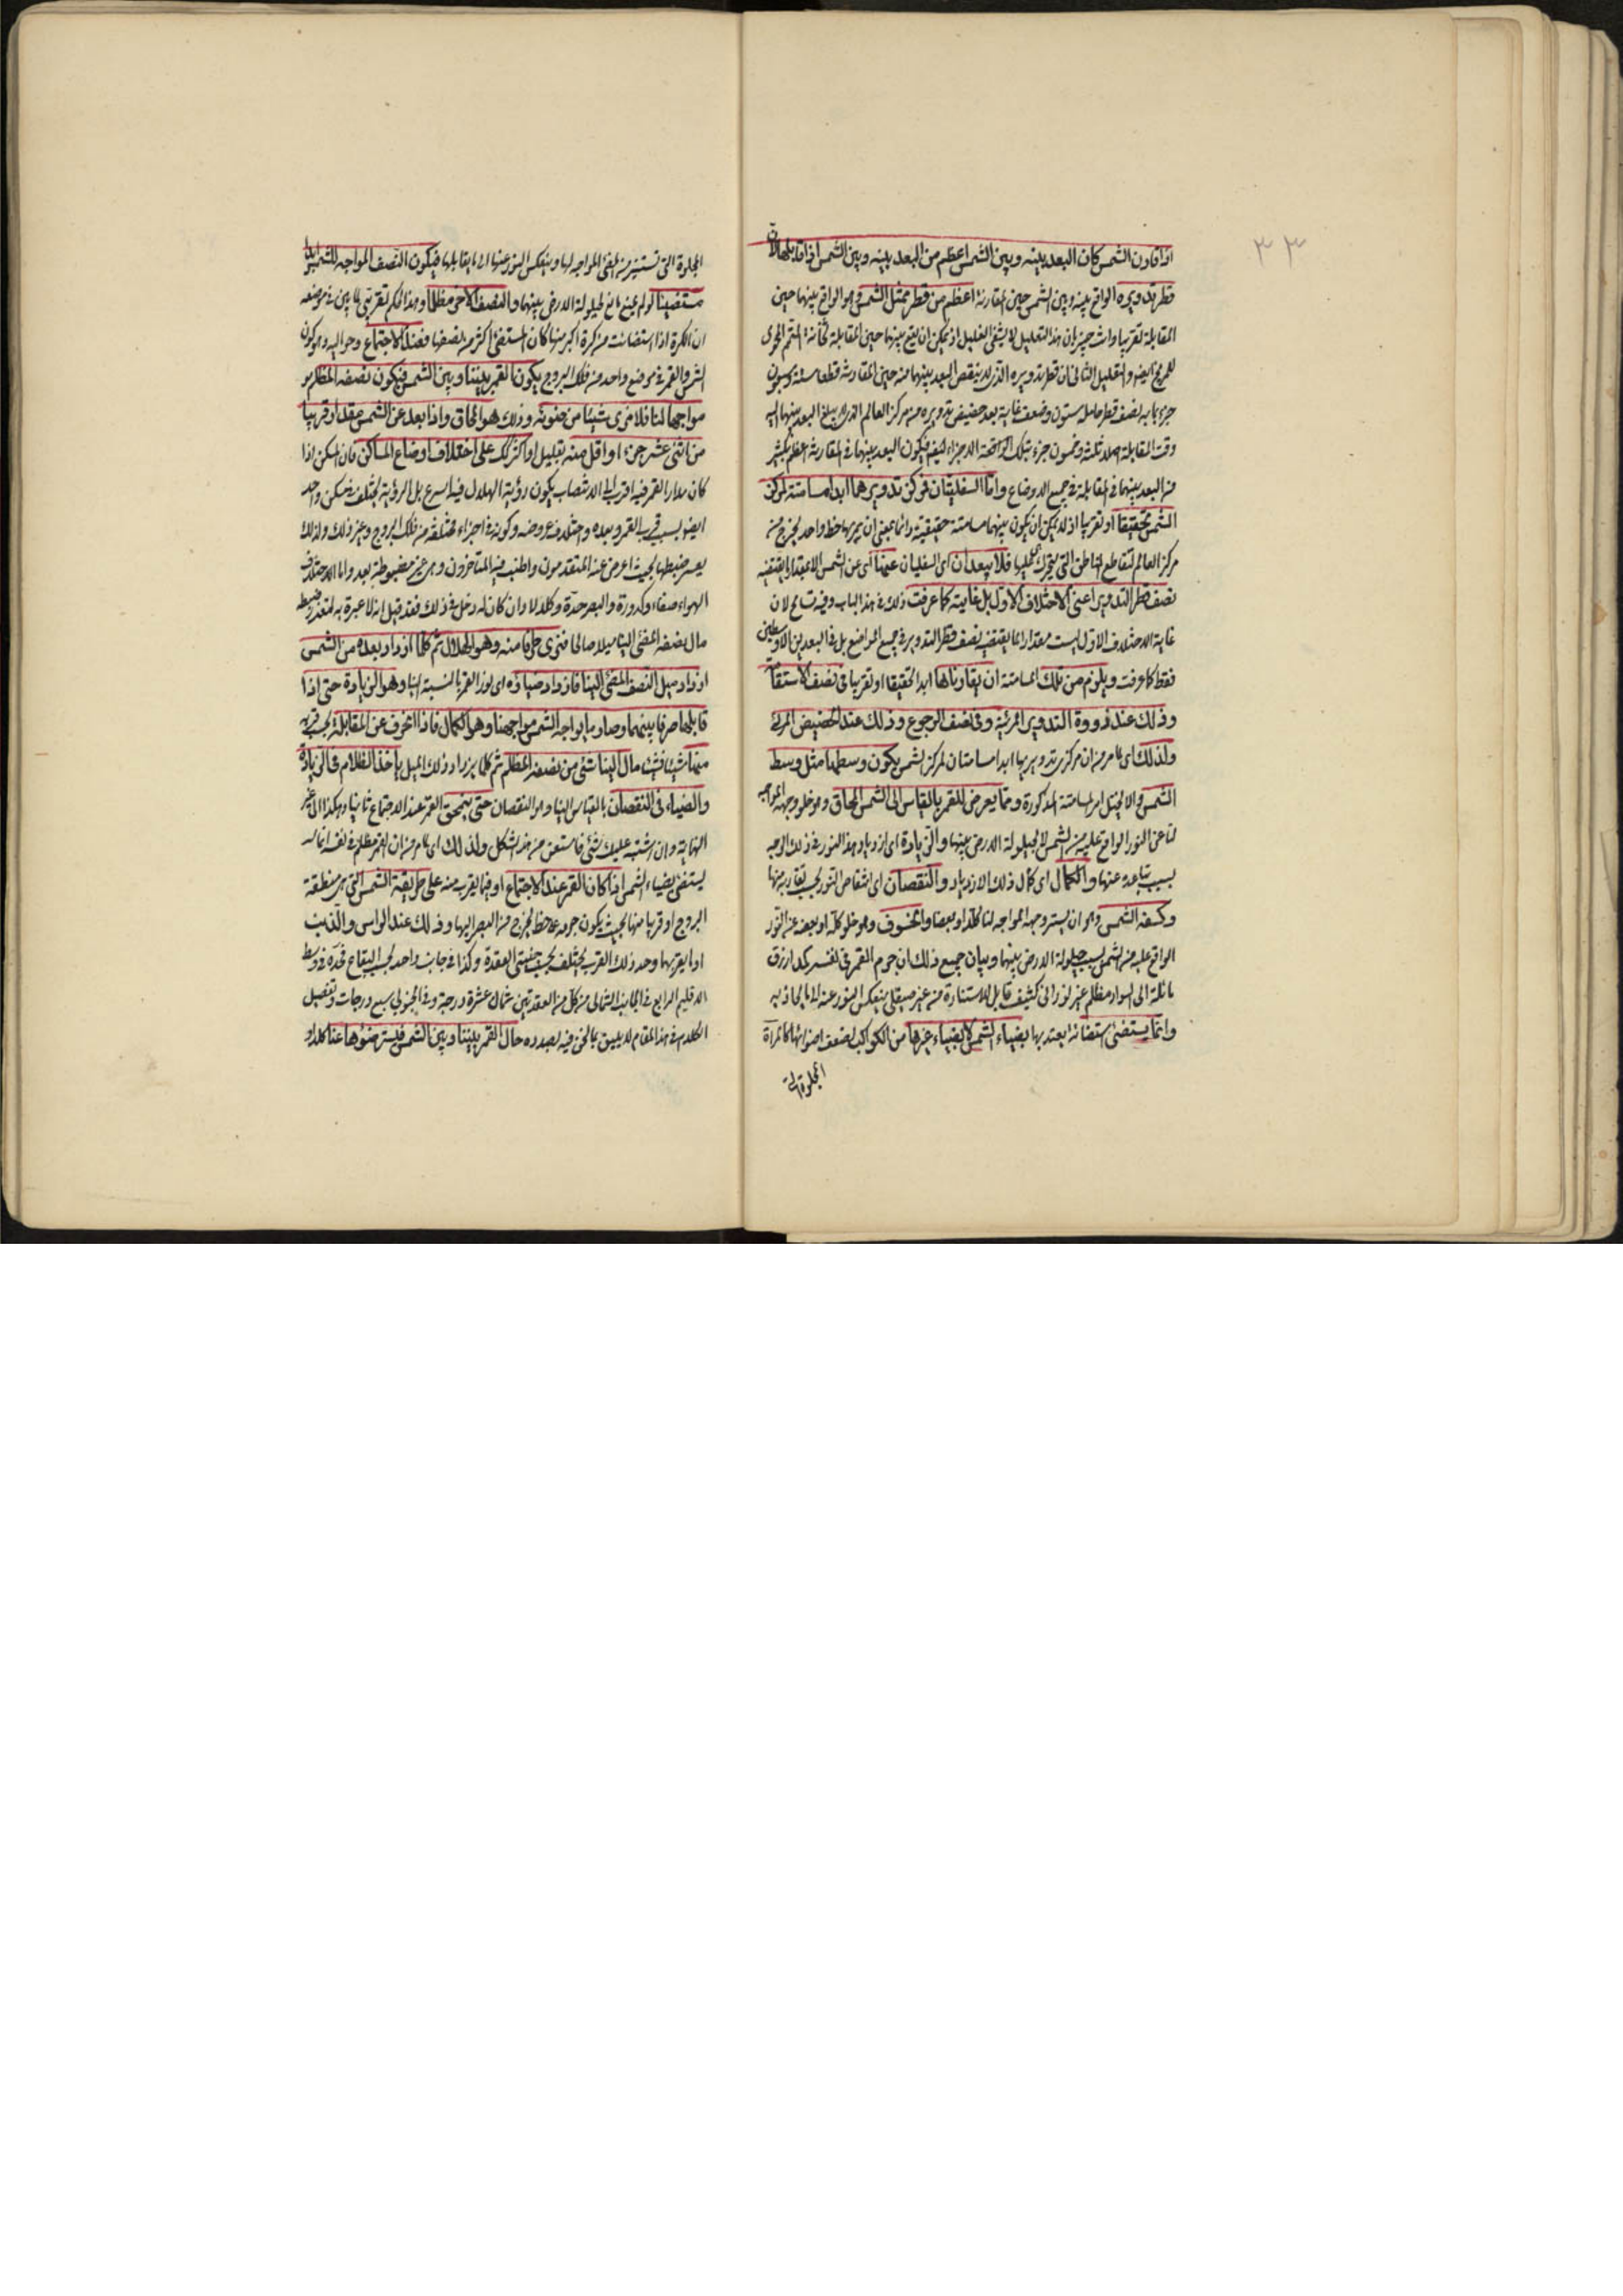 ٣٣
اذا قارن الشمس كان البعد بينه وبين الشمس اعظم من البعد بينه وبين الشمس اذا قابلها لان
قطر تدويره الواقع بينه وبين الشمس حين المقارنة اعظم من قطر ممثل الشمس وهو الواقع بينهما حين
المقابلة تقريبا وانت خبير بان هذا التعليل لا يشفى العليل اذ يمكن ان يقع بينهما حين المقابلة ثخانة المتمم الحاوى
للمريخ ايضا والتعليل الثانى ان قطر تدويره الذى لا ينقص البعد بينهما منه حين المقارنة قطعا
جزءا به نصف قطر حامله ستون وضعف غاية بعد حضيض تدويره من مركز العالم الذى لا يبلغ البعد بينهما اليه
وقت المقابلة اصلا ثلثة وخمون جزء بتلك الاجزاء فيكون البعد بينهما فى المقارنة اعظم بكثير
من البعد بينهما فى المقابلة فى جميع الاوضاع واما السفليتان فمركز تدويرهما ابدا مسامتة لمركز
الشمس تحقيقا او تقريبا اذ لا يمكن ان يكون بينهما مسامتة حقيقية دائما بمعنى ان يمر بهما خط واحد يخرج من
مركز العالم لتقاطع المناطق التى يتحرك عليها فلا يبعدان اى السفليان عنها اى عن الشمس الا بمقدار ما يقتضيه
نصف قطر التدوير اعنى الاختلاف الاول بل غايته كما عرفت ذلك فى هذا الباب وفيه تسامح لان
غاية الاختلاف الاول ليست مقدار ما يقتضيه نصف قطر التدوير فى جميع المواضع بل فى البعدين الاوسطين
فقط كما عرفت ويلزم من تلك المسامتة ان يقارناها ابدا تحقيقا او تقريبا فى نصف الاستقامة
وذلك عند ذروة التدوير المرئية وفى نصف الرجوع وذلك عند الحضيض المرئى
ولذلك اى لما مر من ان مركزى تدويريهما ابدا مسامتان لمركز الشمس يكون وسطهما مثل وسط
الشمس والا لاختل امر المسامتة المذكورة ومما يعرض للقمر بالقياس الى الشمس المحاق وهو خلو وجهه المواجه
لنا عن النور الواقع عليه من الشمس لا لحيلولة الارض بينهما والزيادة اى ازدياد هذا النور فى ذلك الوجه
بسبب تباعده عنها والكمال اى كمال ذلك الازدياد والنقصان اى انتقاص النور بحسب تقاربه منها
وكسفه الشمس وهو ان يستر وجهه المواجه لنا كلا او بعضا والخسوف وهو خلو كله او بعضه عن النور
الواقع عليه من الشمس بسبب حيلولة الارض بينهما وبيان جميع ذلك ان جرم القمر فى نفسه كمد ازرق
مائلة الى السواد مظلم غير نورانى كثيف قابل للاستنارة من غير صيقل ينعكس النور عنه الى ما يحاذيه
وانما يستضئ استضائة يعتد بها بضياء الشمس لا بضياء غيرها من الكواكب لضعف اضوائها كالمرآة
المجلوة التى
المجلوة التى تستنير من المضئ المواجه لها وينعكس النور عنها الى ما يقابلها فيكون النصف المواجه للشمس ابدا
مستضيئا لو لم يمنع مانع كحيلولة الارض بينهما والنصف الاخر مظلما وهذا الحكم تقريبى لما بين فى موضعه
ان الكرة اذا استضائت من كرة اكبر منها كان المستضئ اكثر من نصفها فعند الاجتماع وحواليه وهو كون
الشمس والقمر فى موضع واحد من فلك البروج يكون القمر بيننا وبين الشمس فيكون نصفه المظلم
مواجها لنا فلا نرى شيئا من ضوئه وذلك هو المحاق واذا بعد عن الشمس مقدار قريبا
من اثنى عشر جزءا او اقل منه بقليل او اكثر كذلك على اختلاف اوضاع المساكن فان المسكن اذا
كان مدار القمر فيه اقرب الى الانتصاب يكون رؤية الهلال فيه اسرع بل الرؤية يختلف فى مسكن واحد
ايضا بسبب قرب القمر وبعده واختلاف عروضه وكونه فى اجزاء مختلفة من فلك البروج وغير ذلك ولذلك
يعسر ضبطها بحيث اعرض عنه المتقدمون واطنب فيه المتأخرون وهى غير مضبوطة بعد واما اختلاف
الهواء صفاء وكدورة والبصر حدة وكلالا وان كان له دخل فى ذلك فقد قيل انه لا عبرة به لتعذر ضبطه
مال نصفه المضئ الينا ميلا صالحا فنرى طرفا منه وهو الهلال ثم كلما ازداد بعده من الشمس
ازداد ميل النصف المضئ الينا فازداد ضياؤه اى نور القمر بالنسبة الينا وهو الزيادة حتى اذا
قابلها صرنا بينهما وصار ما يواجه الشمس مواجهنا وهو الكمال فاذا انحرف عن المقابلة بحسب قربه
منها شيئا فشيئا مال الينا شئ من نصفه المظلم ثم كلما يزداد ذلك الميل يأخذ الظلام فى الزيادة
والضياء فى النقصان بالقياس الينا وهو النقصان حتى ينمحق القمر عند الاجتماع ثانيا وهكذا الى غير
النهاية وان اشتبه عليك شئ فاستعن من هذا الشكل ولذلك اى لما مر من ان القمر مظلم فى نفسه انما
يستضئ بضياء الشمس اذا كان القمر عند الاجتماع او فيما يقرب منه على طريقة الشمس التى هى منطقة
البروج او قريبا منها بحيث يكون جرمه على خط يخرج من البصر اليها وذلك عند الراس والذنب
او ما يقربهما وحد ذلك القرب يختلف بحسب جنبتى العقدة وكذا فى جانب واحد بحسب البقاع فحده فى وسط
الاقليم الرابع فى الجانب الشمالى من كل من العقدتين ثمان عشرة درجة وفى الجنوبى سبع درجات وتفصيل
الكلام فى هذا المقام لا يليق بما نحن فيه بصدده حال القمر بيننا وبين الشمس فيستر ضوءها عنا كلا او